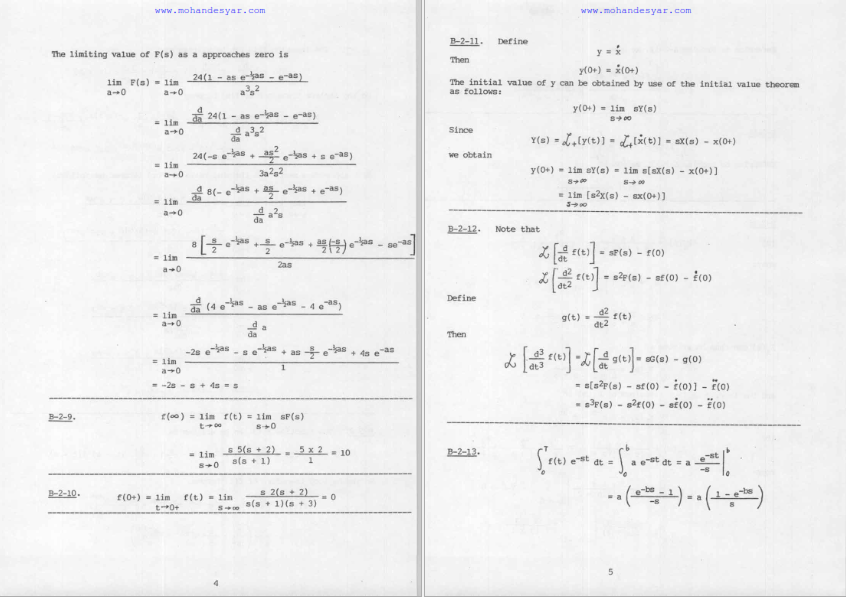 www.mohandesyar.com
The limiting value of F(s) as a approaches zero is
lim F(s) = lim 24(1 - as e^-½as - e^-as) / a³s²
a→0 a→0
= lim d/da 24(1 - as e^-½as - e^-as) / d/da a³s²
a→0
= lim 24(-s e^-½as + as²/2 e^-½as + s e^-as) / 3a²s²
a→0
= lim d/da 8(- e^-½as + as/2 e^-½as + e^-as) / d/da a²s
a→0
= lim 8 [ s/2 e^-½as + s/2 e^-½as + as/2 (-s/2) e^-½as - se^-as ] / 2as
a→0
= lim d/da (4 e^-½as - as e^-½as - 4 e^-as) / d/da a
a→0
= lim -2s e^-½as - s e^-½as + as s/2 e^-½as + 4s e^-as / 1
a→0
= -2s - s + 4s = s
B-2-9. f(∞) = lim f(t) = lim sF(s)
t→∞ s→0
= lim s 5(s + 2) / s(s + 1) = 5 x 2 / 1 = 10
s→0
B-2-10. f(0+) = lim f(t) = lim s 2(s + 2) / s(s + 1)(s + 3) = 0
t→0+ s→∞
4
www.mohandesyar.com
B-2-11. Define
y = ẋ
Then
y(0+) = ẋ(0+)
The initial value of y can be obtained by use of the initial value theorem
as follows:
y(0+) = lim sY(s)
s→∞
Since
Y(s) = ℒ₊[y(t)] = ℒ₊[ẋ(t)] = sX(s) - x(0+)
we obtain
y(0+) = lim sY(s) = lim s[sX(s) - x(0+)]
s→∞ s→∞
= lim [s²X(s) - sx(0+)]
s→∞
B-2-12. Note that
ℒ [ d/dt f(t) ] = sF(s) - f(0)
ℒ [ d²/dt² f(t) ] = s²F(s) - sf(0) - ḟ(0)
Define
g(t) = d²/dt² f(t)
Then
ℒ [ d³/dt³ f(t) ] = ℒ [ d/dt g(t) ] = sG(s) - g(0)
= s[s²F(s) - sf(0) - ḟ(0)] - f̈(0)
= s³F(s) - s²f(0) - sḟ(0) - f̈(0)
B-2-13. ∫₀ᵀ f(t) e^-st dt = ∫₀ᵇ a e^-st dt = a e^-st / -s |₀ᵇ
= a ( e^-bs - 1 / -s ) = a ( 1 - e^-bs / s )
5